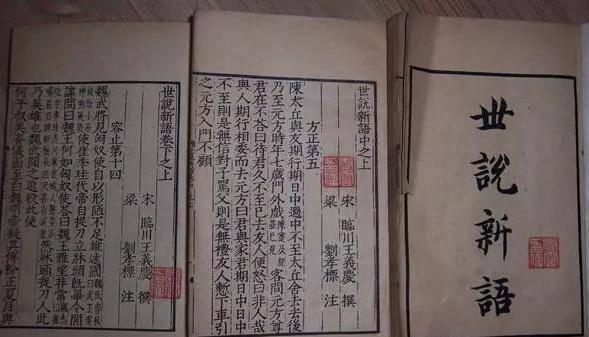 世說新語
世說新語中之上
宋 臨川王義慶 撰
梁 劉孝標 注
方正第五
陳太丘與友期行期日中過中不至太丘舍去去後
乃至元方時年七歲門外戲陳寔及紀並已見客問元方尊
君在不荅曰待君久不至已去友人便怒曰非人哉
與人期行相委而去元方曰君與家君期日中日中
不至則是無信對子罵父則是無禮友人慙下車引
之元方入門不顧
世說新語卷下之上
宋 臨川王義慶 撰
梁 劉孝標 注
容止第十四
魏武將見匈奴使自以形陋不足雄遠國魏氏春秋曰武王
姿貌短小而神明英發使崔季珪代帝自捉刀立牀頭旣畢令間
諜問曰魏王何如匈奴使荅曰魏王雅望非常
然牀頭捉刀人此
乃英雄也魏武聞之追殺此使
何平叔美姿儀面至白魏明帝疑其傅粉正夏月與